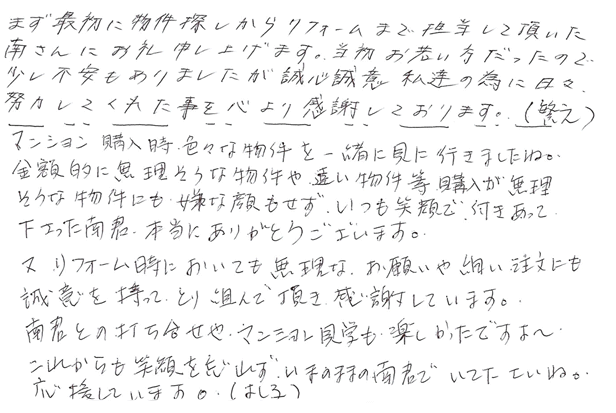 まず最初に物件探しからリフォームまで担当して頂いた
南さんにお礼申し上げます。当初お若い方だったので
少し不安もありましたが誠心誠意 私達の為に日々、
努力してくれた事を心より感謝しております。(繁え)
マンション購入時、色々な物件を一緒に見に行きましたね。
金額的に無理そうな物件や、遠い物件等購入が無理
そうな物件にも、嫌な顔もせず、いつも笑顔で、付きあって
下さった南君、本当にありがとうございます。
又、リフォーム時においても無理な、お願いや細い注文にも
誠意を持って、とり組んで頂き、感謝しています。
南君との打ち合せや、マンション見学も、楽しかったですよ〜
これからも笑顔を忘れず、いまのままの南君でいて下さいね。
応援しています。